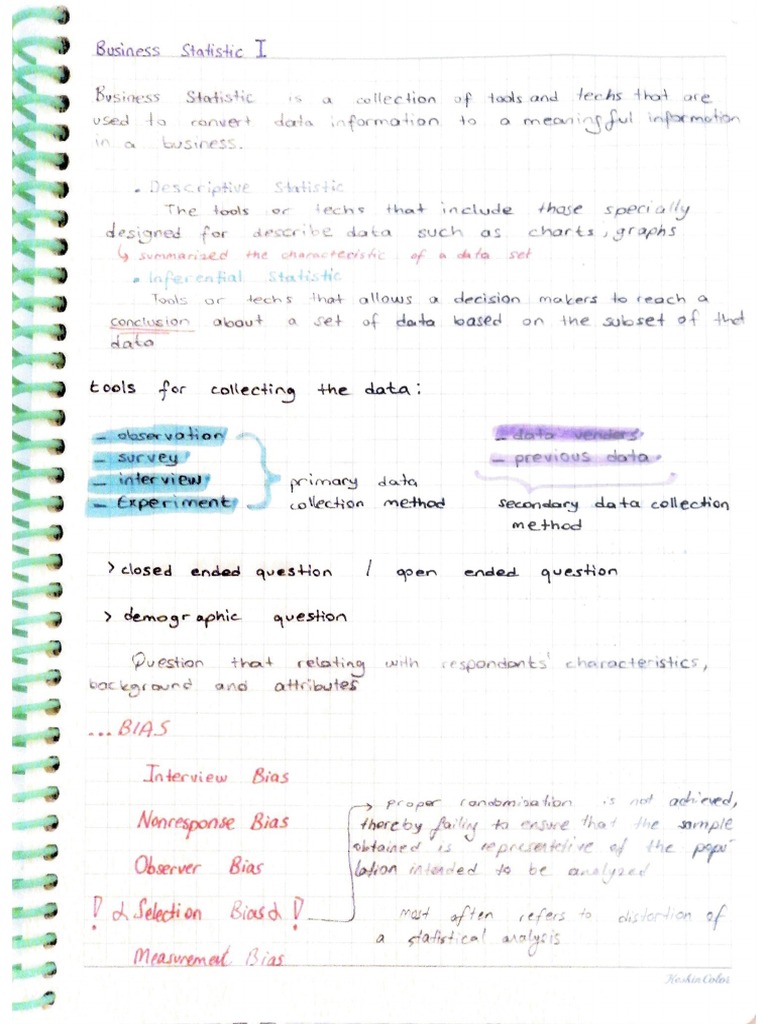 Business Statistic I
Business Statistic is a collection of tools and techs that are
used to convert data information to a meaningful information
in a business.
• Descriptive Statistic
The tools or techs that include those specially
designed for describe data such as charts, graphs
↳ summarized the characteristic of a data set
• Inferential Statistic
Tools or techs that allows a decision makers to reach a
conclusion about a set of data based on the subset of that
data
tools for collecting the data:
- observation
- survey
- interview
- Experiment
primary data
collection method
- data venders
- previous data
secondary data collection
method
> closed ended question / open ended question
> demographic question
Question that relating with respondants' characteristics,
background and attributes
...BIAS
Interview Bias
Nonresponse Bias
Observer Bias
! Selection Bias !
Measurement Bias
→ proper randomization is not achieved,
thereby failing to ensure that the sample
obtained is representetive of the popu
lation intended to be analyzed
most often refers to distortion of
a statistical analysis
Keskin Color